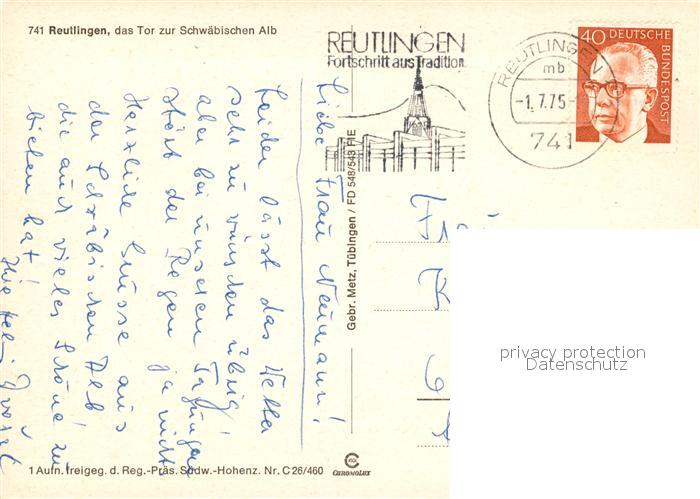 741 Reutlingen, das Tor zur Schwäbischen Alb
REUTLINGEN
Fortschritt aus Tradition
REUTLINGEN
mb
-1.7.75-
741
40 DEUTSCHE
BUNDESPOST
Liebe Frau Neumann!
Leider lässt das Wetter
sehr zu wünschen übrig!
aber bei unseren Tagungen
stört der Regen ja nicht
Herzliche Grüsse aus
der Schwäbischen Alb
die auch vieles Schöne zu
bieten hat!
Ihre
Gebr. Metz, Tübingen / FD 548/543 RE
Fr
K
6
privacy protection
Datenschutz
1 Aufn. freigeg. d. Reg.-Präs. Südw.-Hohenz. Nr. C 26/460
CHROMOLUX